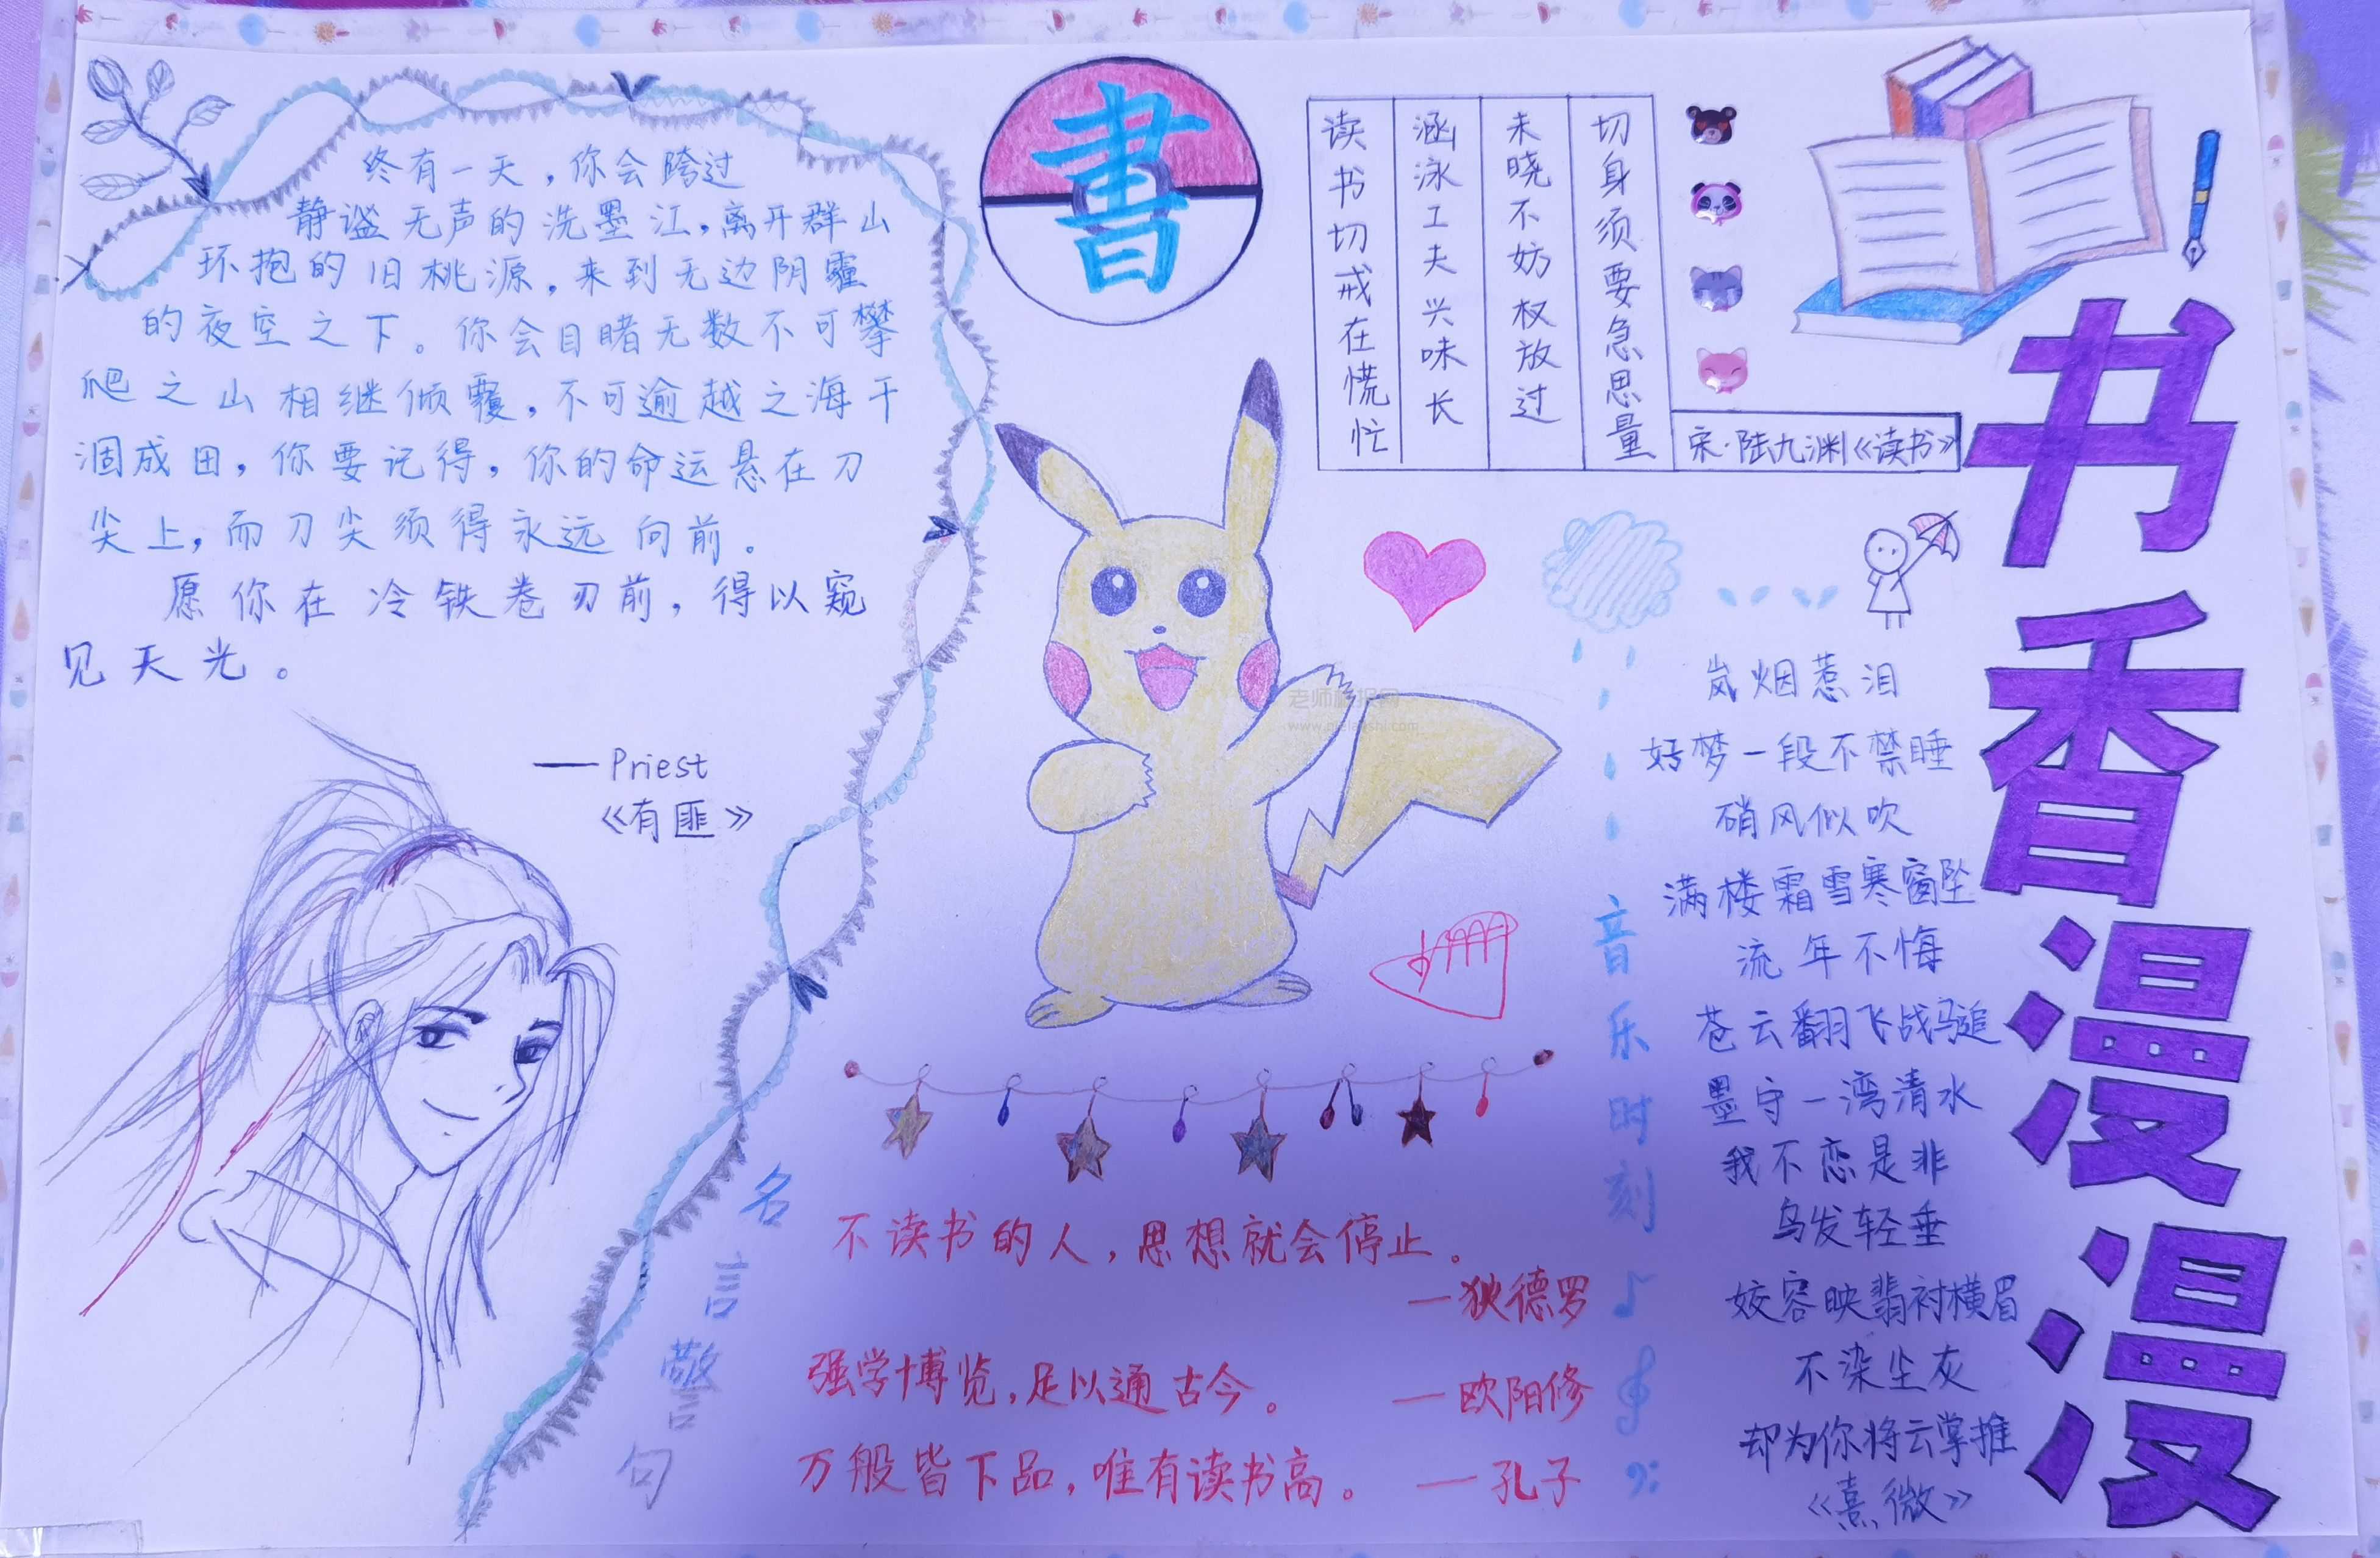 终有一天，你会跨过
静谧无声的洗墨江，离开群山
环抱的旧桃源，来到无边阴霾
的夜空之下。你会目睹无数不可攀
爬之山相继倾覆，不可逾越之海干
涸成田，你要记得，你的命运悬在刀
尖上，而刀尖须得永远向前。
愿你在冷铁卷刃前，得以窥
见天光。
——Priest
《有匪》
書
读书切戒在慌忙
涵泳工夫兴味长
未晓不妨权放过
切身须要急思量
宋·陆九渊《读书》
书香漫漫
老师板报网
音乐时刻
岚烟惹泪
好梦一段不禁睡
硝风似吹
满楼霜雪寒窗坠
流年不悔
苍云翻飞战骑追
墨守一湾清水
我不恋是非
乌发轻垂
姣容映翡衬横眉
不染尘灰
却为你将云掌推
《熹微》
名言警句
不读书的人，思想就会停止。
—狄德罗
强学博览，足以通古今。 —欧阳修
万般皆下品，唯有读书高。 —孔子